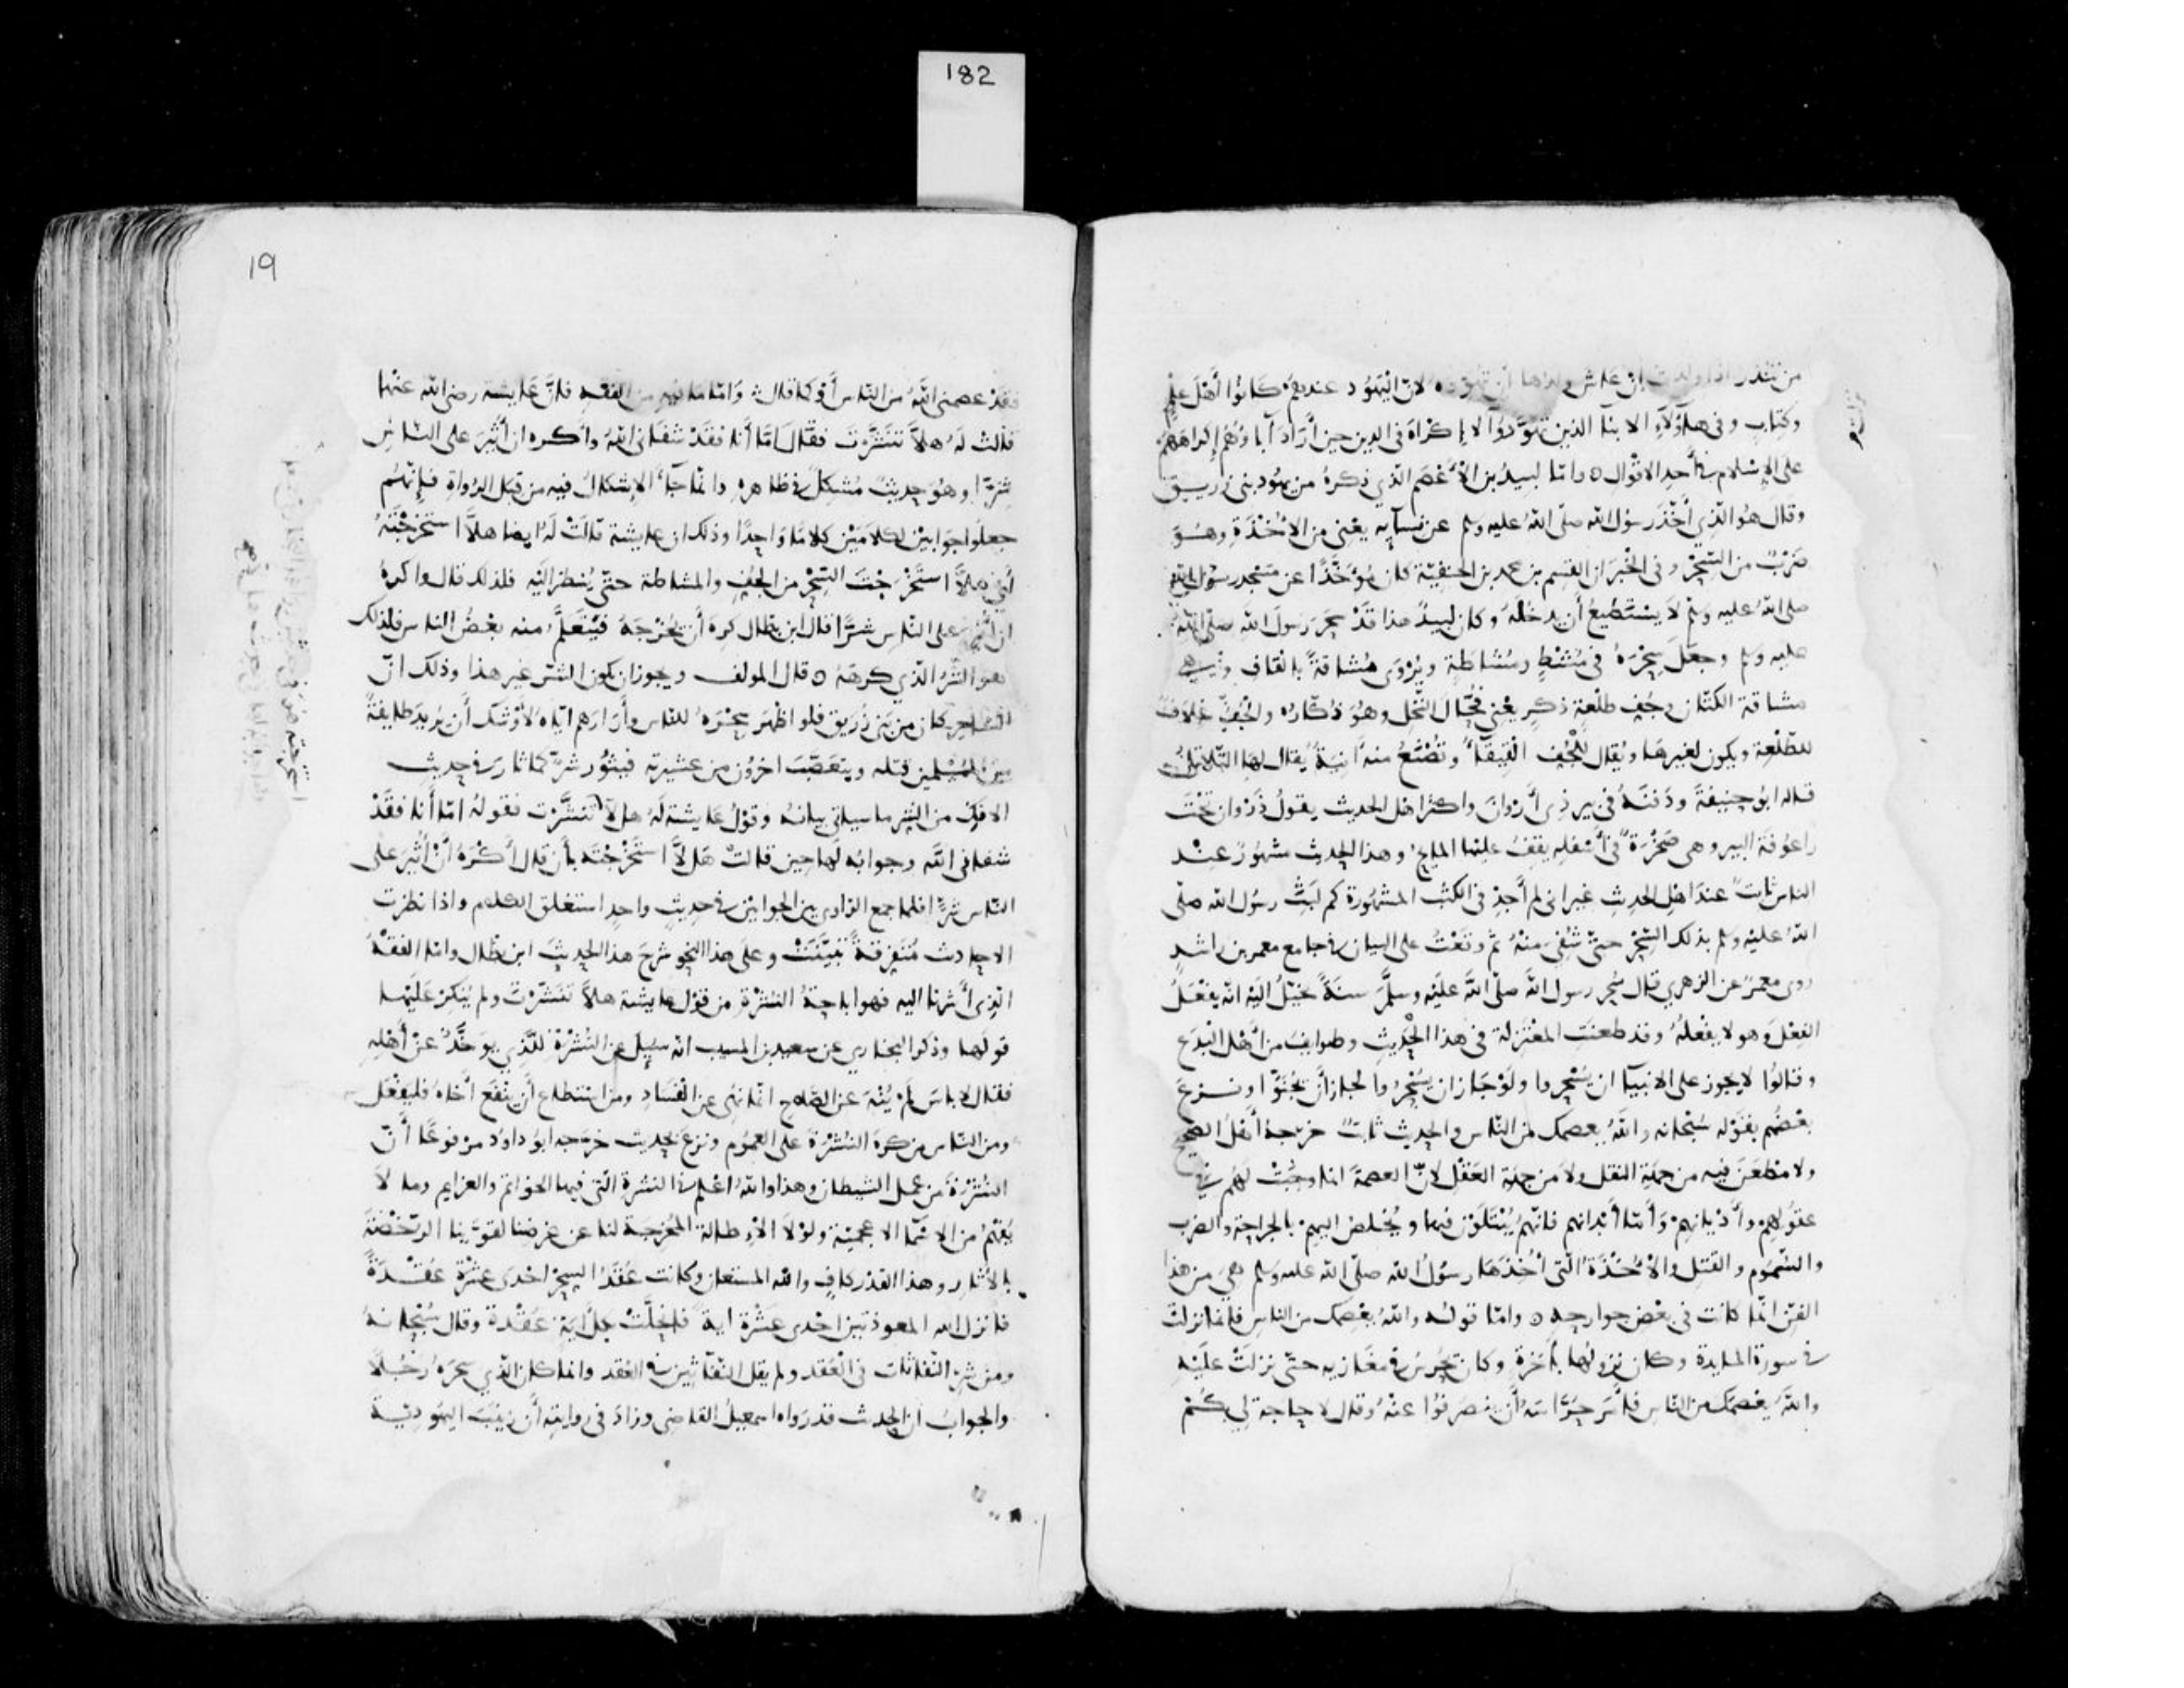 182
من تنذر اذا ولدت إن عاش ولدها أن تهوّده لانّ اليَهُود عندهم كانُوا أَهْلَ عِلمٍ
وكتابٍ وفى هاؤلآءِ الابنآ الذين تهوَّدُوآ لا إكْراهَ فى الدين حين أرَادَ آباؤهُم إكراهَهُم
على الإسْلام فى أَحدِ الاقْوالِ ه وامّا لبيدُ بن الأَعْصَم الذى ذكرهُ من يهُود بنى زريق
وقال هُو الّذى أَخَّذَ رسُول الله صلّى اللهُ عليه وسلم عن نسآيه يعْنى من الاُخْذَةِ وهُوَ
ضَرْبٌ من السِّحْرِ وفى الخَبَر ان القسم بن محمد بن الحنفيّة كان مُؤخَّذًا عن مَسْجد رسُول الله
صلى اللهُ عليه وسلم لا يسْتَطيعُ أن يدخُلَهُ وكان لبيدٌ هذا قدْ سَحَر رسُولَ الله صلّى الله
عليه وسلم وجعَلَ سِحْرَهُ فى مُشْطٍ ومُشَاطَةٍ ويُرْوَى مُشاقةٍ بالقاف وهى
مشاقة الكتّان وجُفِ طلْعةِ ذكرٍ يعْنى فُحَّالَ النّخل وهُو ذُكّارُه والجُفّ غلافٌ
للطّلْعة ويكون لغيرها ويُقال للجُفِ القِيقآءُ وتُصْنَعُ منه آنيَةٌ يُقالُ لها التّلاتلُ
قاله ابُو حنِيفةَ ودَفنَهُ فى بير ذى أَرْوان واكثرُ اهل الحديث يقولُ ذَرْوان تحْتَ
راعُوفة البير وهى صَخْرَةٌ فى أَسْفلِه يقفُ عليْها المايح وهذا الحديث مشهُورٌ عند
الناس ثابتٌ عند اهل الحديثِ غير انى لم أَجدْ فى الكتب المشهُورة كم لَبثَ رسُول الله صلى
اللهُ عليْه وسلم بذلك السِّحْرِ حتّى شُفِىَ منْهُ ثم وقعْتُ على البيان فى جامع معمر بن راشدٍ
روى معمرٌ عن الزهرى قال سُحِر رسول الله صلّى اللهُ علَيْه وسلَّم سنةً يخيّلُ اليْه انّه يفْعَلُ
الفِعْلَ وهو لا يفْعلُهُ وقد طعنَتِ المعْتزلة فى هذا الْحَديثِ وطوايفُ من أَهْل البْدَع
وقالُوا لا يجوز على الانبيآ ان يُسْحرُوا ولَوْ جَاز ان يسْحَرُوا لجاز أَنْ يجُنّوْا ونزعَ
بعْضُهُم بقوْله سُبْحانه والله يعصمك من النّاس والحديث ثابتٌ خرّجهُ أَهْلُ الصحيح
ولا مَطْعنَ فيه من جهةِ النقل ولا من جهَةِ العَقْل لانّ العصمةَ انما وجَبتْ لَهُم فى
عقُولهم وأَدْيانهم وَأَمّا أَبْدانهم فانهُم يُبْتَلَوْن فيها ويُخلصُ اليهمْ بالجراحة والضرب
والسُّمُوم والقتْل والأُخْذَة الّتى أُخِّذَهَا رسُولُ الله صلّى الله عليه وسلم هى من هذا
الفنّ انّما كانت فى بعْض جوارحه ه وامّا قولُه واللهُ يعْصمُك من الناس فانها نزلت
فى سورة المايدة وكان نزولُها بأَخرَةٍ وكان يُحْرسُ فى مغَازيه حتّى نزلَتْ علَيْه
واللهُ يعْصمُك من النّاس فأَمَر حُرّاسَهُ أَن ينصرفُوا عنْهُ وقال لا حاجة لى بكُم
19
فقدْ عصمنى اللّهُ من النّاس أَوْ كما قال ه وَامّا مَا فيه من الفقْه فإنّ عَايشة رضى الله عنْها
قالتْ لَهُ هلاَّ تنَشَّرْتَ فقال امّا أَنا فقدْ شفانى اللهُ واكره ان أُثيرَ على النّاس
شرًّا وهُوَ حديثٌ مُشكلٌ فى ظاهره وانما جآءَ الإشكالُ فيه من قبَل الرُواةِ فإنّهُم
جعلُوا جوابيْن لكلامَيْن كلامًا وَاحدًا وذلك ان عايشة قالَتْ لَهُ ايضا هلاَّ استَخرجْتَهُ
أى هلاَّ استَخْرجْتَ السِّحْرَ من الجُفِ والمشاطة حتّى يُنظر اليْه فلذلك قال واكرهُ
ان أُثيرَ على النّاس شرًّا قال ابن بطّال كره أَن يُخْرجَهُ فيتَعلَّمَ منه بعْضُ الناس فلذلك
هو الشّرُّ الّذى كرهَهُ ه قال المولف ويجوز ان يكون الشّر غير هذا وذلك انّ
السّاحر كان من بَنى زُرَيق فلو اظهرَ سِحْرَهُ للنّاس وأَرَارَهم ايّاهُ لأوْشكَ أَن يُريد طايفةٌ
من المُسْلمين قتلَه ويتعَصّبَ اخرُون من عشيرته فيثُور شرٌّ كما ثار فى حديث
الافك من الشّر ما سياتى بيانُهُ وقوْلُ عَايشة لَهُ هلاَّ تَنَشَّرْت فقوله امّا أَنا فقدْ
شفانى اللهُ وجوابُه لها حين قالتْ هَلاَّ استَخْرجْتَه بأَن قال أَكْرهُ أَنْ أُثيرَ على
النّاس شرًّا فلما جمع الرّاوى بين الجوابيْن فى حديثٍ واحدٍ استغلق الكلام واذا نظرت
الاحاديث مُتَفرقةً تَبيَّنتْ وعلى هذا النّحْو شرحَ هذا الحديثَ ابن بطّال وامّا الفقْهُ
الّذى أَشرْنا اليه فهو اباحةُ النُشْرة من قوْل عايشة هلاَّ تنَشّرْتَ ولم يُنكرْ علَيْها
قولَها وذكر البخارى عن سعيد بن المسيب انّه سُيِلَ عن النُشْرةِ للّذى يؤَخَّذُ عنْ أَهْلِه
فقال لا بأسَ لم يُنْهَ عن الصّلاح انّما نُهى عن الفسَاد ومن استطاع أن ينْفَعَ أخاهُ فليفْعَل
ومن النّاس من كرهَ النُشْرةَ على العمُوم ونزعَ بحديث خرّجه ابُو داودُ مرْفوعًا أَنّ
النُشْرةَ من عمل الشيطان وهذا واللهُ اعْلم فى النشرة الّتى فيها الخواتم والعزايم وما لا
يُفْهمُ من الاسْمآ الاعجميّة ولوْلا الإطالة المُخرجَة لنا عن غرضنا لقوّيْنا الرّخْصَةَ
بالآثار وهذا القدْر كافٍ والله المستعان وكانت عُقَدُ السِّحْر احْدى عشْرة عُقْدةً
فانزل الله المعوذتين احْدى عشْرة ايةً فانْحلَّتْ بكلّ ايَةٍ عُقْدة وقال سُبْحانهُ
ومن شرّ النّفاثات فى العُقد ولم يقل النّفّاثين فى العقد وانما كان الذى سحَرهُ رجُلاً
والجوابُ ان الحديث قد رَواه اسمعيلُ القاضى وزادَ فى روايته أَن زيْنَبَ اليهُوديّة